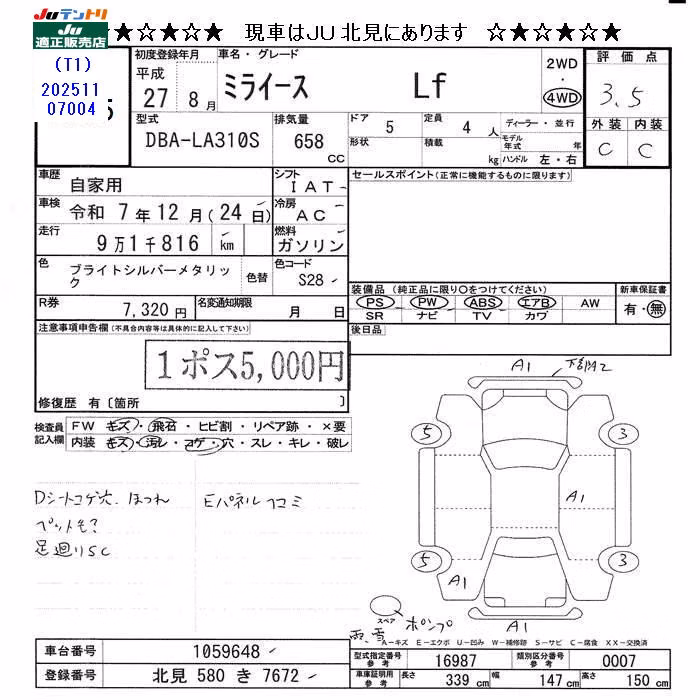 Juテントリ
JU適正販売店
★☆★☆★☆ 現車はＪＵ北見にあります ☆★☆★☆★
(T1)
202511
07004
5
初度登録年月 車名・グレード 2WD・4WD 評価点
平成 27 8月 ミライース Lf 3.5
型式 排気量 ドア 5 定員 4人 ディーラー・並行 外装 内装
DBA-LA310S 658 CC 形状 積載 kg モデル年式 年 C C
ハンドル 左・右
車歴 自家用 シフト IAT セールスポイント(正常に機能するものに限ります)
車検 令和 7年12月(24日) 冷房 AC
走行 9万1千816 km 燃料 ガソリン
色 ブライトシルバーメタリック 色替 色コード S28
装備品 (純正品に限り○をつけてください) 新車保証書
PS PW ABS エアB AW 有・無
SR ナビ TV カワ
R券 7,320円 名変通知期限 月 日
後日品
注意事項申告欄(不具合内容等は具体的に記入して下さい)
1ポス5,000円
修復歴 有〔箇所 〕
検査員記入欄 FW キズ・飛石・ヒビ割・リペア跡・×要
内装 キズ・汚レ・コゲ・穴・スレ・キレ・破レ
Dシートコゲ穴、ほつれ Eパネルコミ
ペット毛?
足廻りSC
A1 下部A2
5 3
A1
5 3
A1
スペア ポンプ A1
雨、雪
A－キズ E－エクボ U－凹み W－補修跡 S－サビ C－腐食 XX－交換済
車台番号 1059648 型式指定番号 参考 16987 類別区分番号 参考 0007
登録番号 北見 580 き 7672 車庫証明用 参考 長さ 339 cm 幅 147 cm 高さ 150 cm